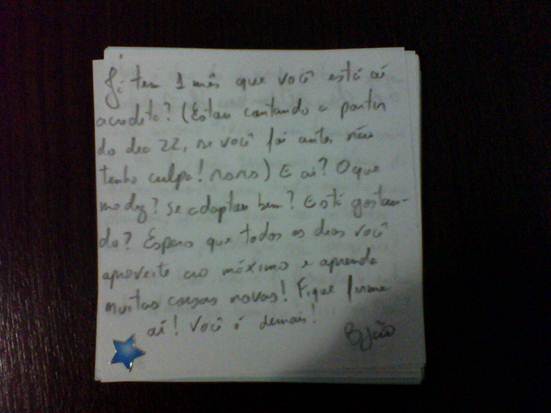 Já tem 1 mês que você está aí
acredita? (Estou contando a partir
do dia 22, se você foi antes não
tenho culpa! rsrsrs) E aí? O que
me diz? Se adaptou bem? Está gostan-
do? Espero que todos os dias você
aproveite ao máximo e aprenda
muitas coisas novas! Fique firme
aí! Você é demais!
Bjão